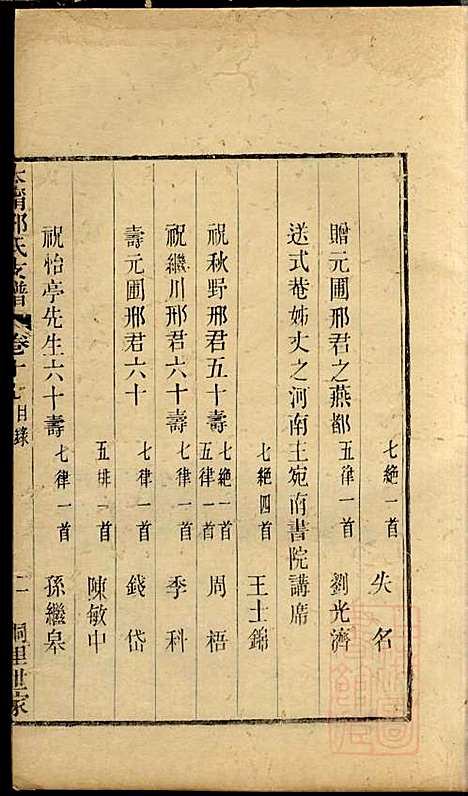 七絶一首 失名
贈元圃邢君之燕都 五律一首 劉光濟
送式菴姊丈之河南主宛南書院講席
七絶四首 王士錦
祝秋野邢君五十壽 七絶一首 五律一首 周梧
祝繼川邢君六十壽 七律一首 季科
壽元圃邢君六十 七律一首 錢岱
五排一首 陳敏中
祝怡亭先生六十壽 七律一首 孫繼皋
邢氏支譜 卷十 目錄 二 桐里世家